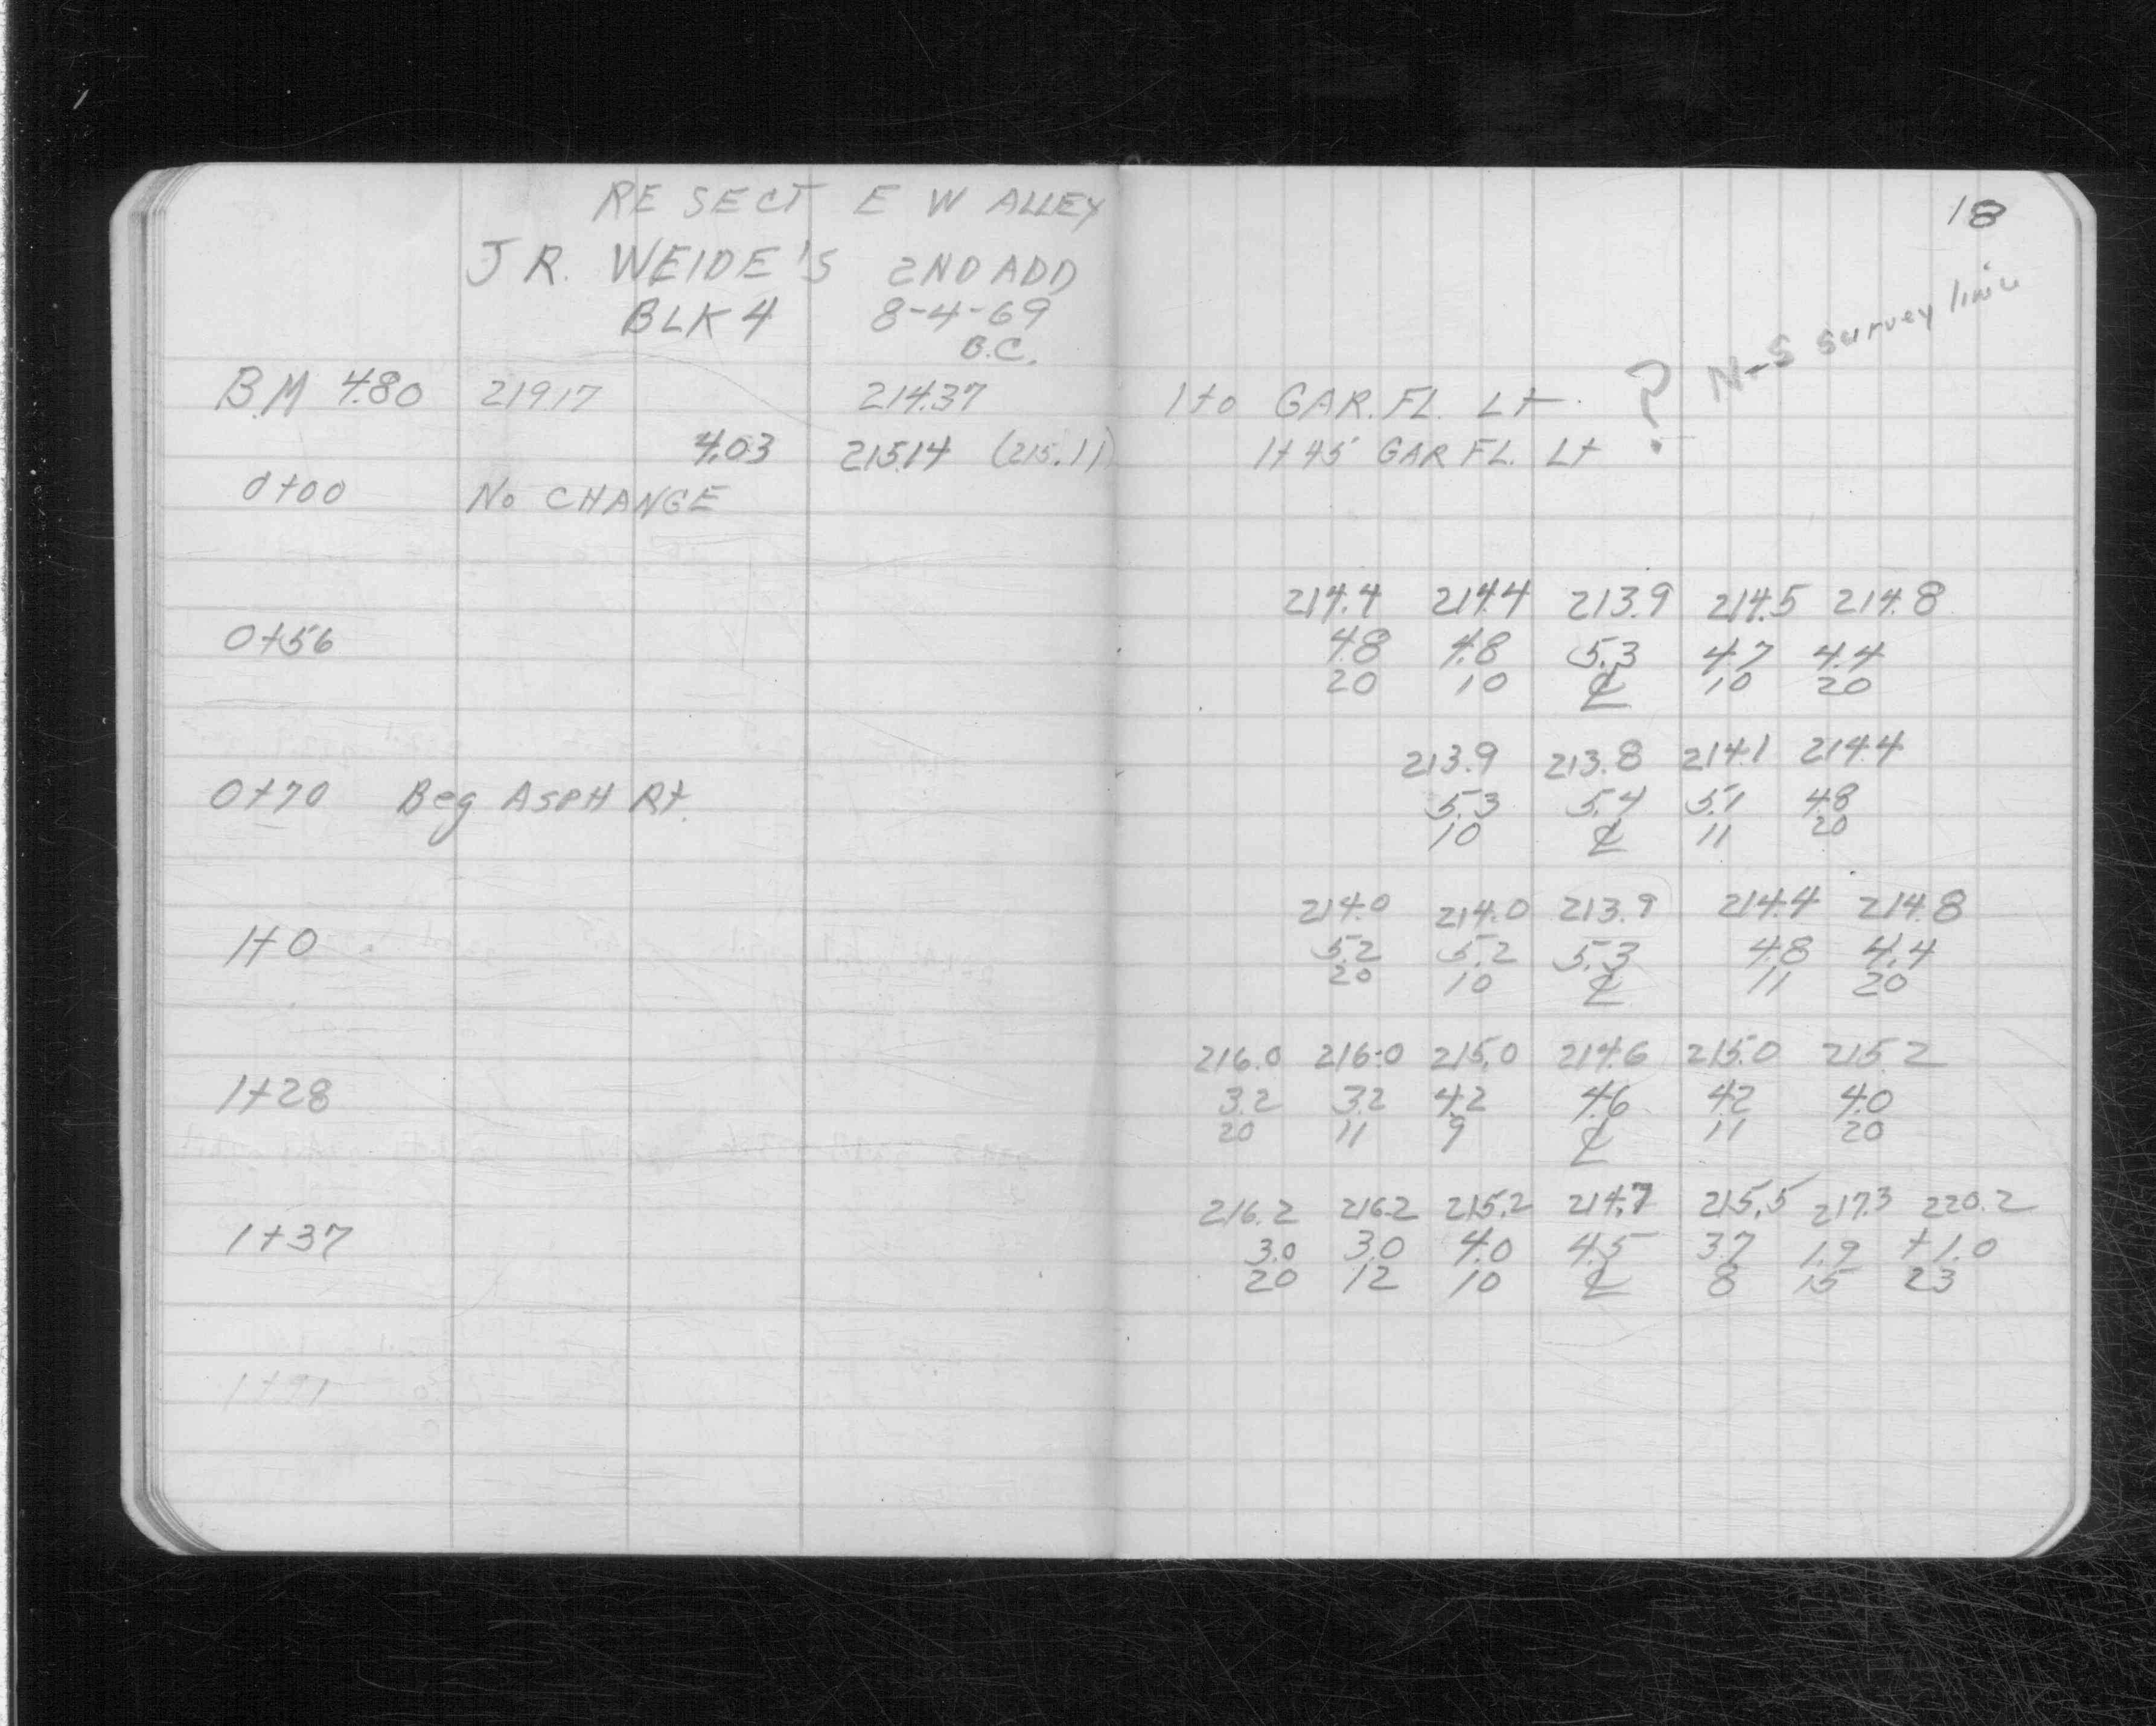 RE SECT E W ALLEY
J R. WEIDE'S 2ND ADD
BLK 4 8-4-69
B.C.
B.M 4.80 219.17 214.37
4.03 215.14 (215.11)
0+00 No CHANGE
0+56
0+70 Beg ASPH Rt.
1+0
1+28
1+37
18
N-S survey line
1+0 GAR. FL. Lt ?
1+45 GAR FL. Lt
214.4 214.4 213.9 214.5 214.8
4.8 4.8 5.3 4.7 4.4
20 10 ℄ 10 20
213.9 213.8 214.1 214.4
5.3 5.4 5.1 4.8
10 ℄ 11 20
214.0 214.0 213.9 214.4 214.8
5.2 5.2 5.3 4.8 4.4
20 10 ℄ 11 20
216.0 216.0 215.0 214.6 215.0 215.2
3.2 3.2 4.2 4.6 4.2 4.0
20 11 9 ℄ 11 20
216.2 216.2 215.2 214.7 215.5 217.3 220.2
3.0 3.0 4.0 4.5 3.7 1.9 +1.0
20 12 10 ℄ 8 15 23